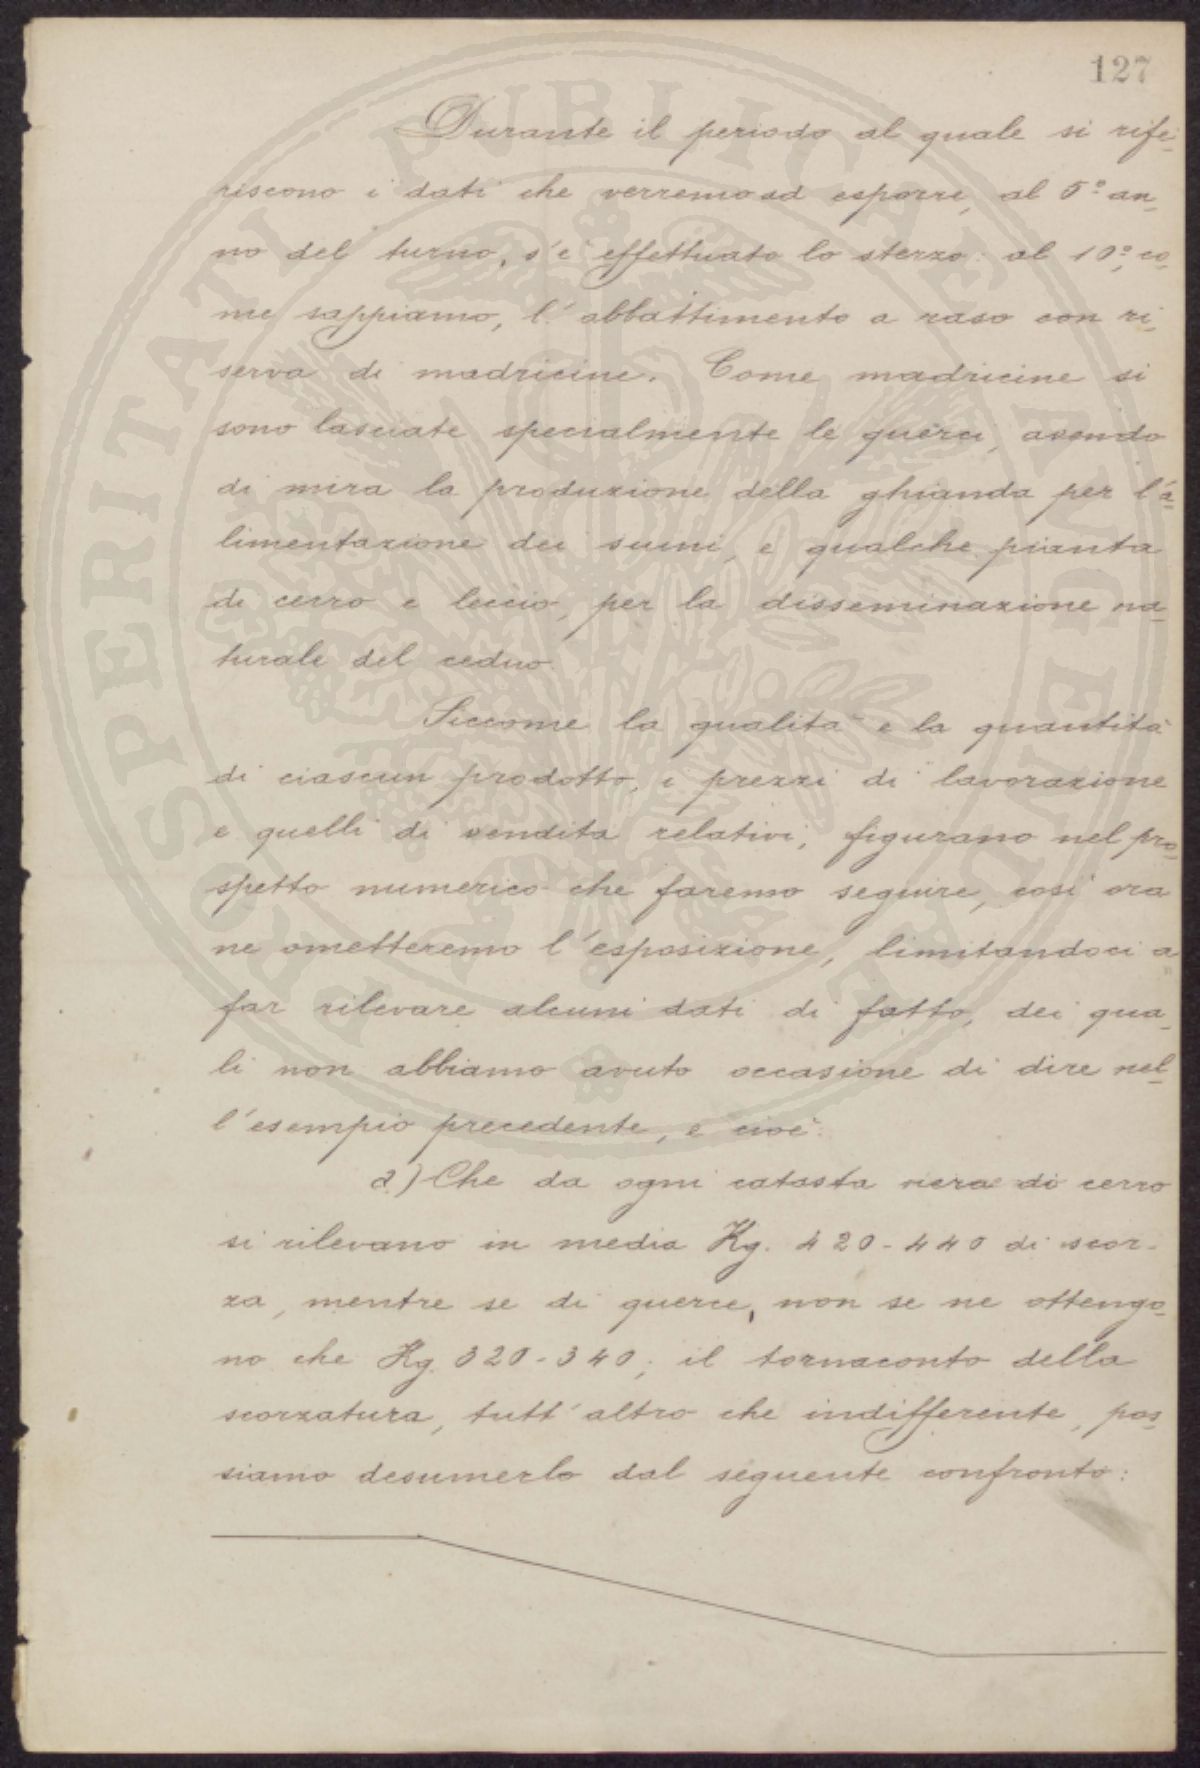 127
Durante il periodo al quale si rife-
riscono i dati che verremo ad esporre, al 5º an-
no del turno, s'è effettuato lo sterzo: al 10º, co-
me sappiamo, l'abbattimento a raso con ri-
serva di madricine. Come madricine si
sono lasciate specialmente le querci, avendo
di mira la produzione della ghianda per l'a-
limentazione dei suini, e qualche pianta
di cerro e leccio, per la disseminazione na-
turale del ceduo.
Siccome la qualità e la quantità
di ciascun prodotto, i prezzi di lavorazione
e quelli di vendita relativi, figurano nel pro-
spetto numerico che faremo seguire, così ora
ne ometteremo l'esposizione, limitandoci a
far rilevare alcuni dati di fatto, dei qua-
li non abbiamo avuto occasione di dire nel-
l'esempio precedente, e cioè:
a) Che da ogni catasta nera di cerro
si rilevano in media Kg. 420-440 di scor-
za, mentre se di querce, non se ne ottengo-
no che Kg. 320-340; il tornaconto della
scorzatura, tutt'altro che indifferente, pos-
siamo desumerlo dal seguente confronto:
PROSPERITATI PUBLICAE AUGENDAE